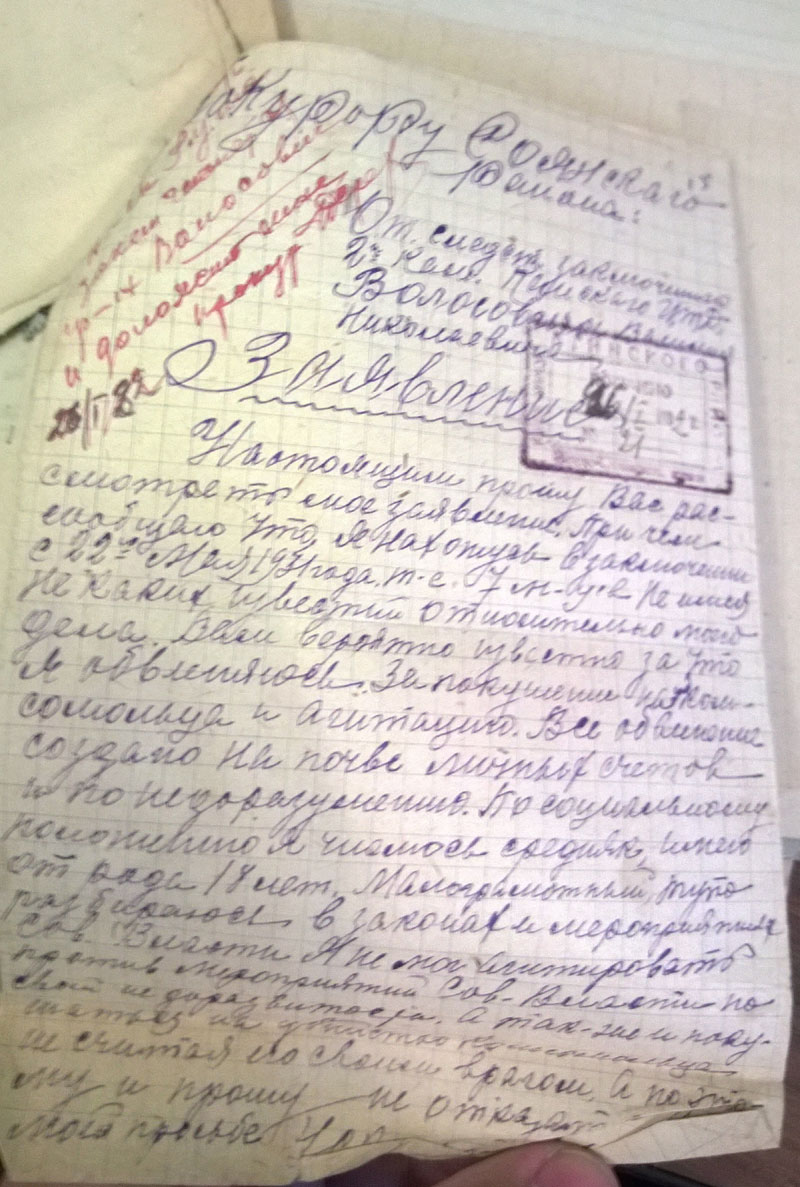 Прокурору Роянского
района:
От. следст. заключенного
2й Кол.
Волосован
Николаевича
и доложите мне
26/I 32
Заявление
26/I
21
Настоящим прошу Вас рас-
смотреть мое заявление, При чем
сообщаю что, я нахожусь в заключении
с 22го Мая 1931 года, т-е. 7 м-цев не имея
не каких известий относительно моего
дела. Вам вероятно известно за что
я обвеняюсь. За покушение на ком-
сомольца и агитацию. Все обвенение
создано на почве личных счетов
и по недоразумению. По социальному
положению я числюсь средняк, имею
от роду 18 лет, Малограмотный, тупо
разбираюсь в законах и мероприятиях
Сов. Власти Я не мог агитировать
против мероприятий Сов-Власти по
своей недоразвитости. А так-же и поку-
шаться на убийство комсомольца
не считая его своим врагом. А поэто
му и прошу не отказат
моей просьбе